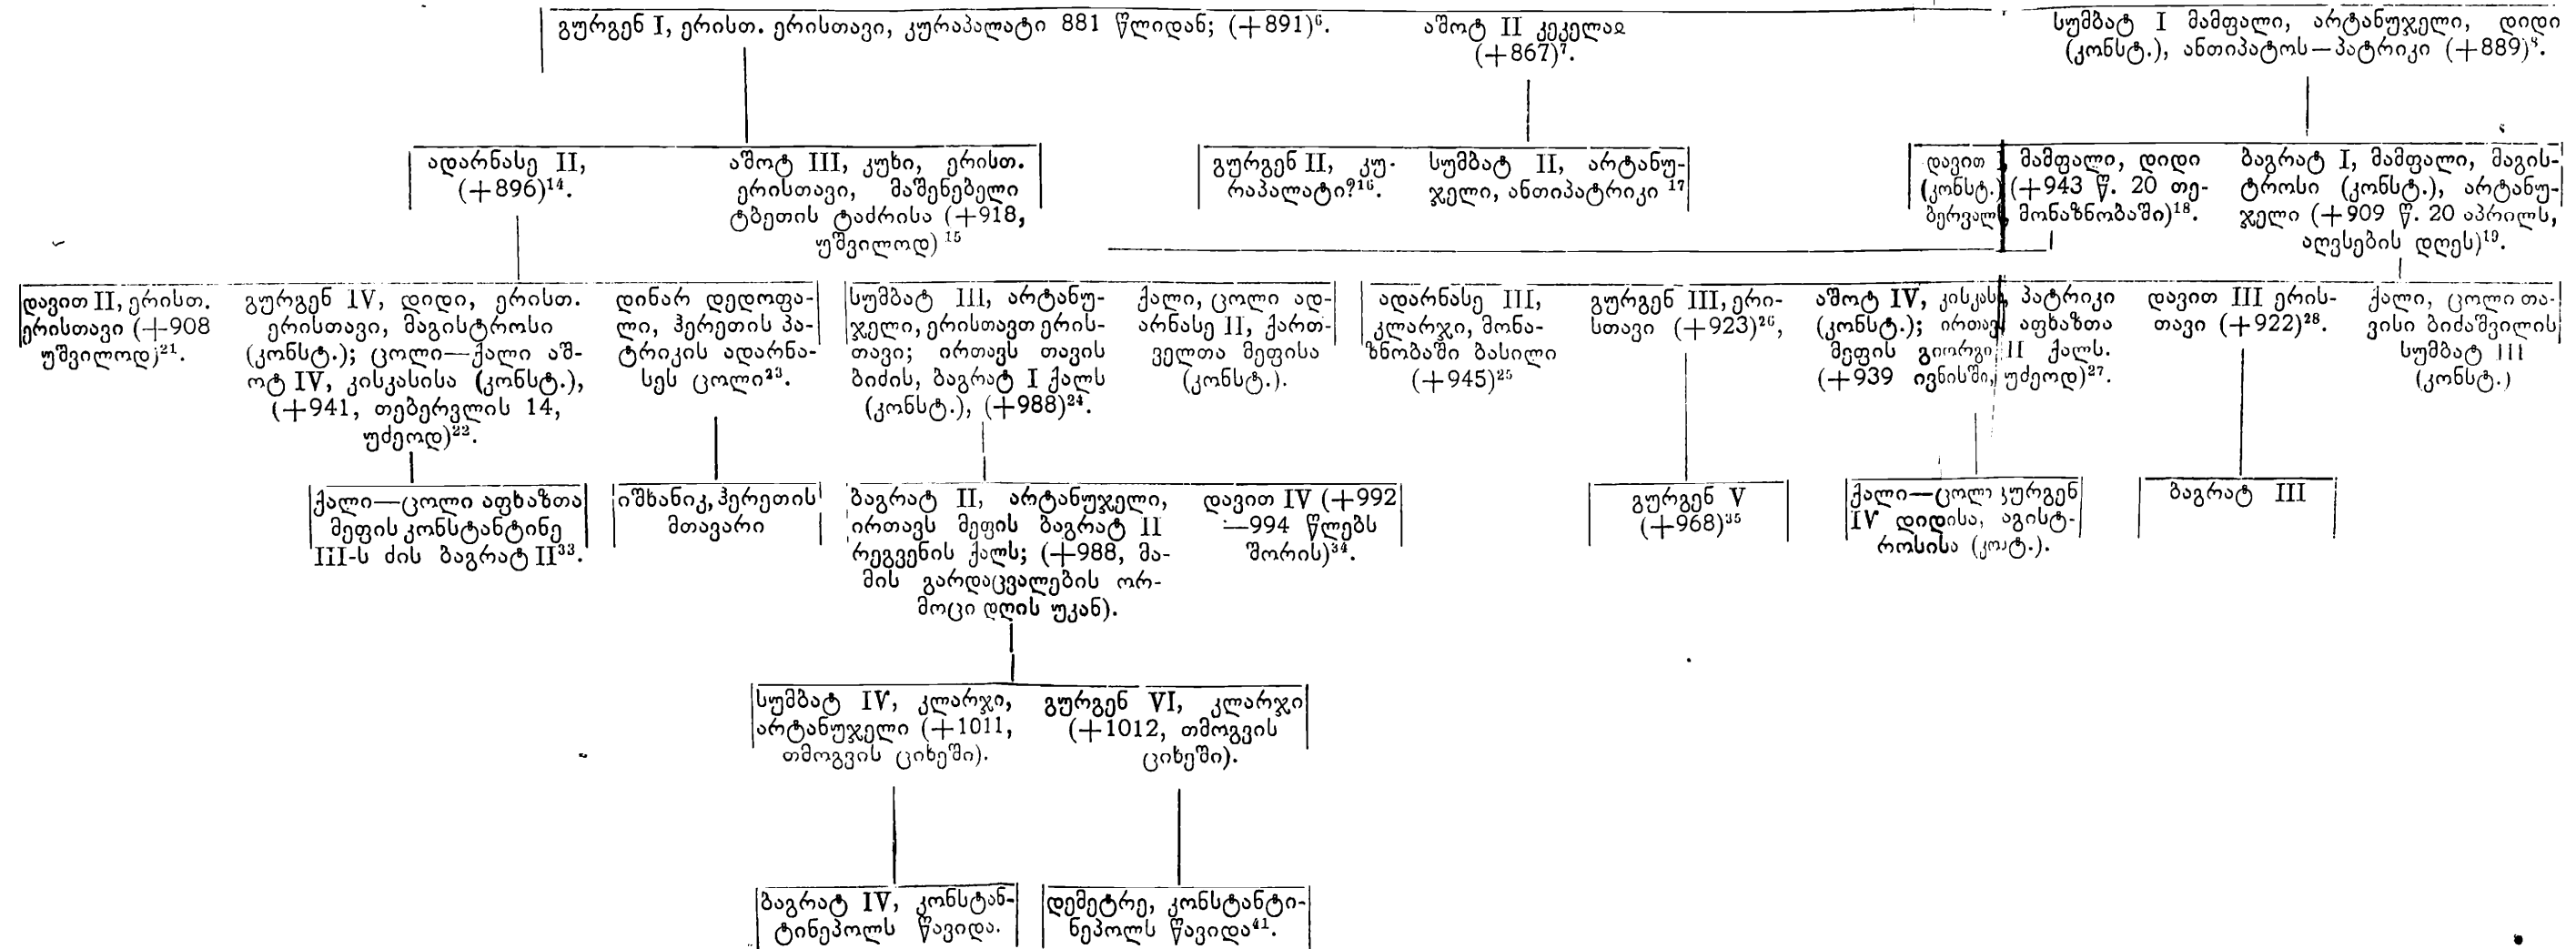 გურგენ I, ერისთ. ერისთავი, კურაპალატი 881 წლიდან; (+891)⁶.
აშოტ II კეკელაჲ
(+867)⁷.
სუმბატ I მამფალი, არტანუჯელი, დიდი
(კონსტ.), ანთიპატოს—პატრიკი (+889)⁸.
ადარნასე II,
(+896)¹⁴.
აშოტ III, კუხი, ერისთ.
ერისთავი, მაშენებელი
ტბეთის ტაძრისა (+918,
უშვილოდ)¹⁵
გურგენ II, კუ-
რაპალატი?¹⁶.
სუმბატ II, არტანუ-
ჯელი, ანთიპატრიკი ¹⁷
დავით I, მამფალი, დიდი
(კონსტ.) (+943 წ. 20 თე-
ბერვალს, მონაზნობაში)¹⁸.
ბაგრატ I, მამფალი, მაგის-
ტროსი (კონსტ.), არტანუ-
ჯელი (+909 წ. 20 აპრილს,
აღვსების დღეს)¹⁹.
დავით II, ერისთ.
ერისთავი (+908
უშვილოდ)²¹.
გურგენ IV, დიდი, ერისთ.
ერისთავი, მაგისტროსი
(კონსტ.); ცოლი—ქალი აშ-
ოტ IV, კისკასისა (კონსტ.),
(+941, თებერვლის 14,
უძეოდ)²².
დინარ დედოფა-
ლი, ჰერეთის პა-
ტრიკის ადარნა-
სეს ცოლი²³.
სუმბატ III, არტანუ-
ჯელი, ერისთავთ ერის-
თავი; ირთავს თავის
ბიძის, ბაგრატ I ქალს
(კონსტ.), (+988)²⁴.
ქალი, ცოლი ად-
არნასე II, ქართ-
ველთა მეფისა
(კონსტ.).
ადარნასე III,
კლარჯი, მონა-
ზნობაში ბასილი
(+945)²⁵
გურგენ III, ერი-
სთავი (+923)²⁶,
აშოტ IV, კისკასი, პატრიკი
(კონსტ.); ირთავს აფხაზთა
მეფის გიორგი II ქალს.
(+939 ივნისში, უძეოდ)²⁷.
დავით III ერის-
თავი (+922)²⁸.
ქალი, ცოლი თა-
ვისი ბიძაშვილის
სუმბატ III
(კონსტ.)
ქალი—ცოლი აფხაზთა
მეფის კონსტანტინე
III-ს ძის ბაგრატ II³³.
იშხანიკ, ჰერეთის
მთავარი
ბაგრატ II, არტანუჯელი,
ირთავს მეფის ბაგრატ II
რეგვენის ქალს; (+988, მა-
მის გარდაცვალების ორ-
მოცი დღის უკან).
დავით IV (+992
—994 წლებს
შორის)³⁴.
გურგენ V
(+968)³⁵
ქალი—ცოლი გურგენ
IV დიდისა, აგისტ-
როსისა (კონტ.).
ბაგრატ III
სუმბატ IV, კლარჯი,
არტანუჯელი (+1011,
თმოგვის ციხეში).
გურგენ VI, კლარჯი
(+1012, თმოგვის
ციხეში).
ბაგრატ IV, კონსტან-
ტინეპოლს წავიდა.
დემეტრე, კონსტანტი-
ნეპოლს წავიდა⁴¹.